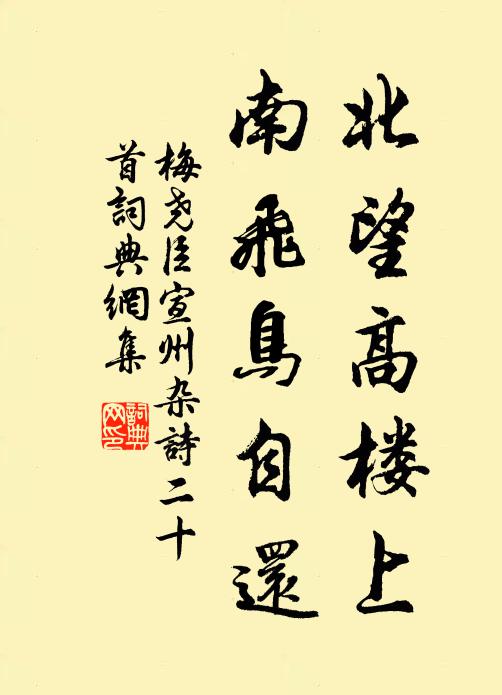 北望高楼上
南飛鳥自還
梅尧臣宣州杂詩二十
首詞典網集
詞典
网印